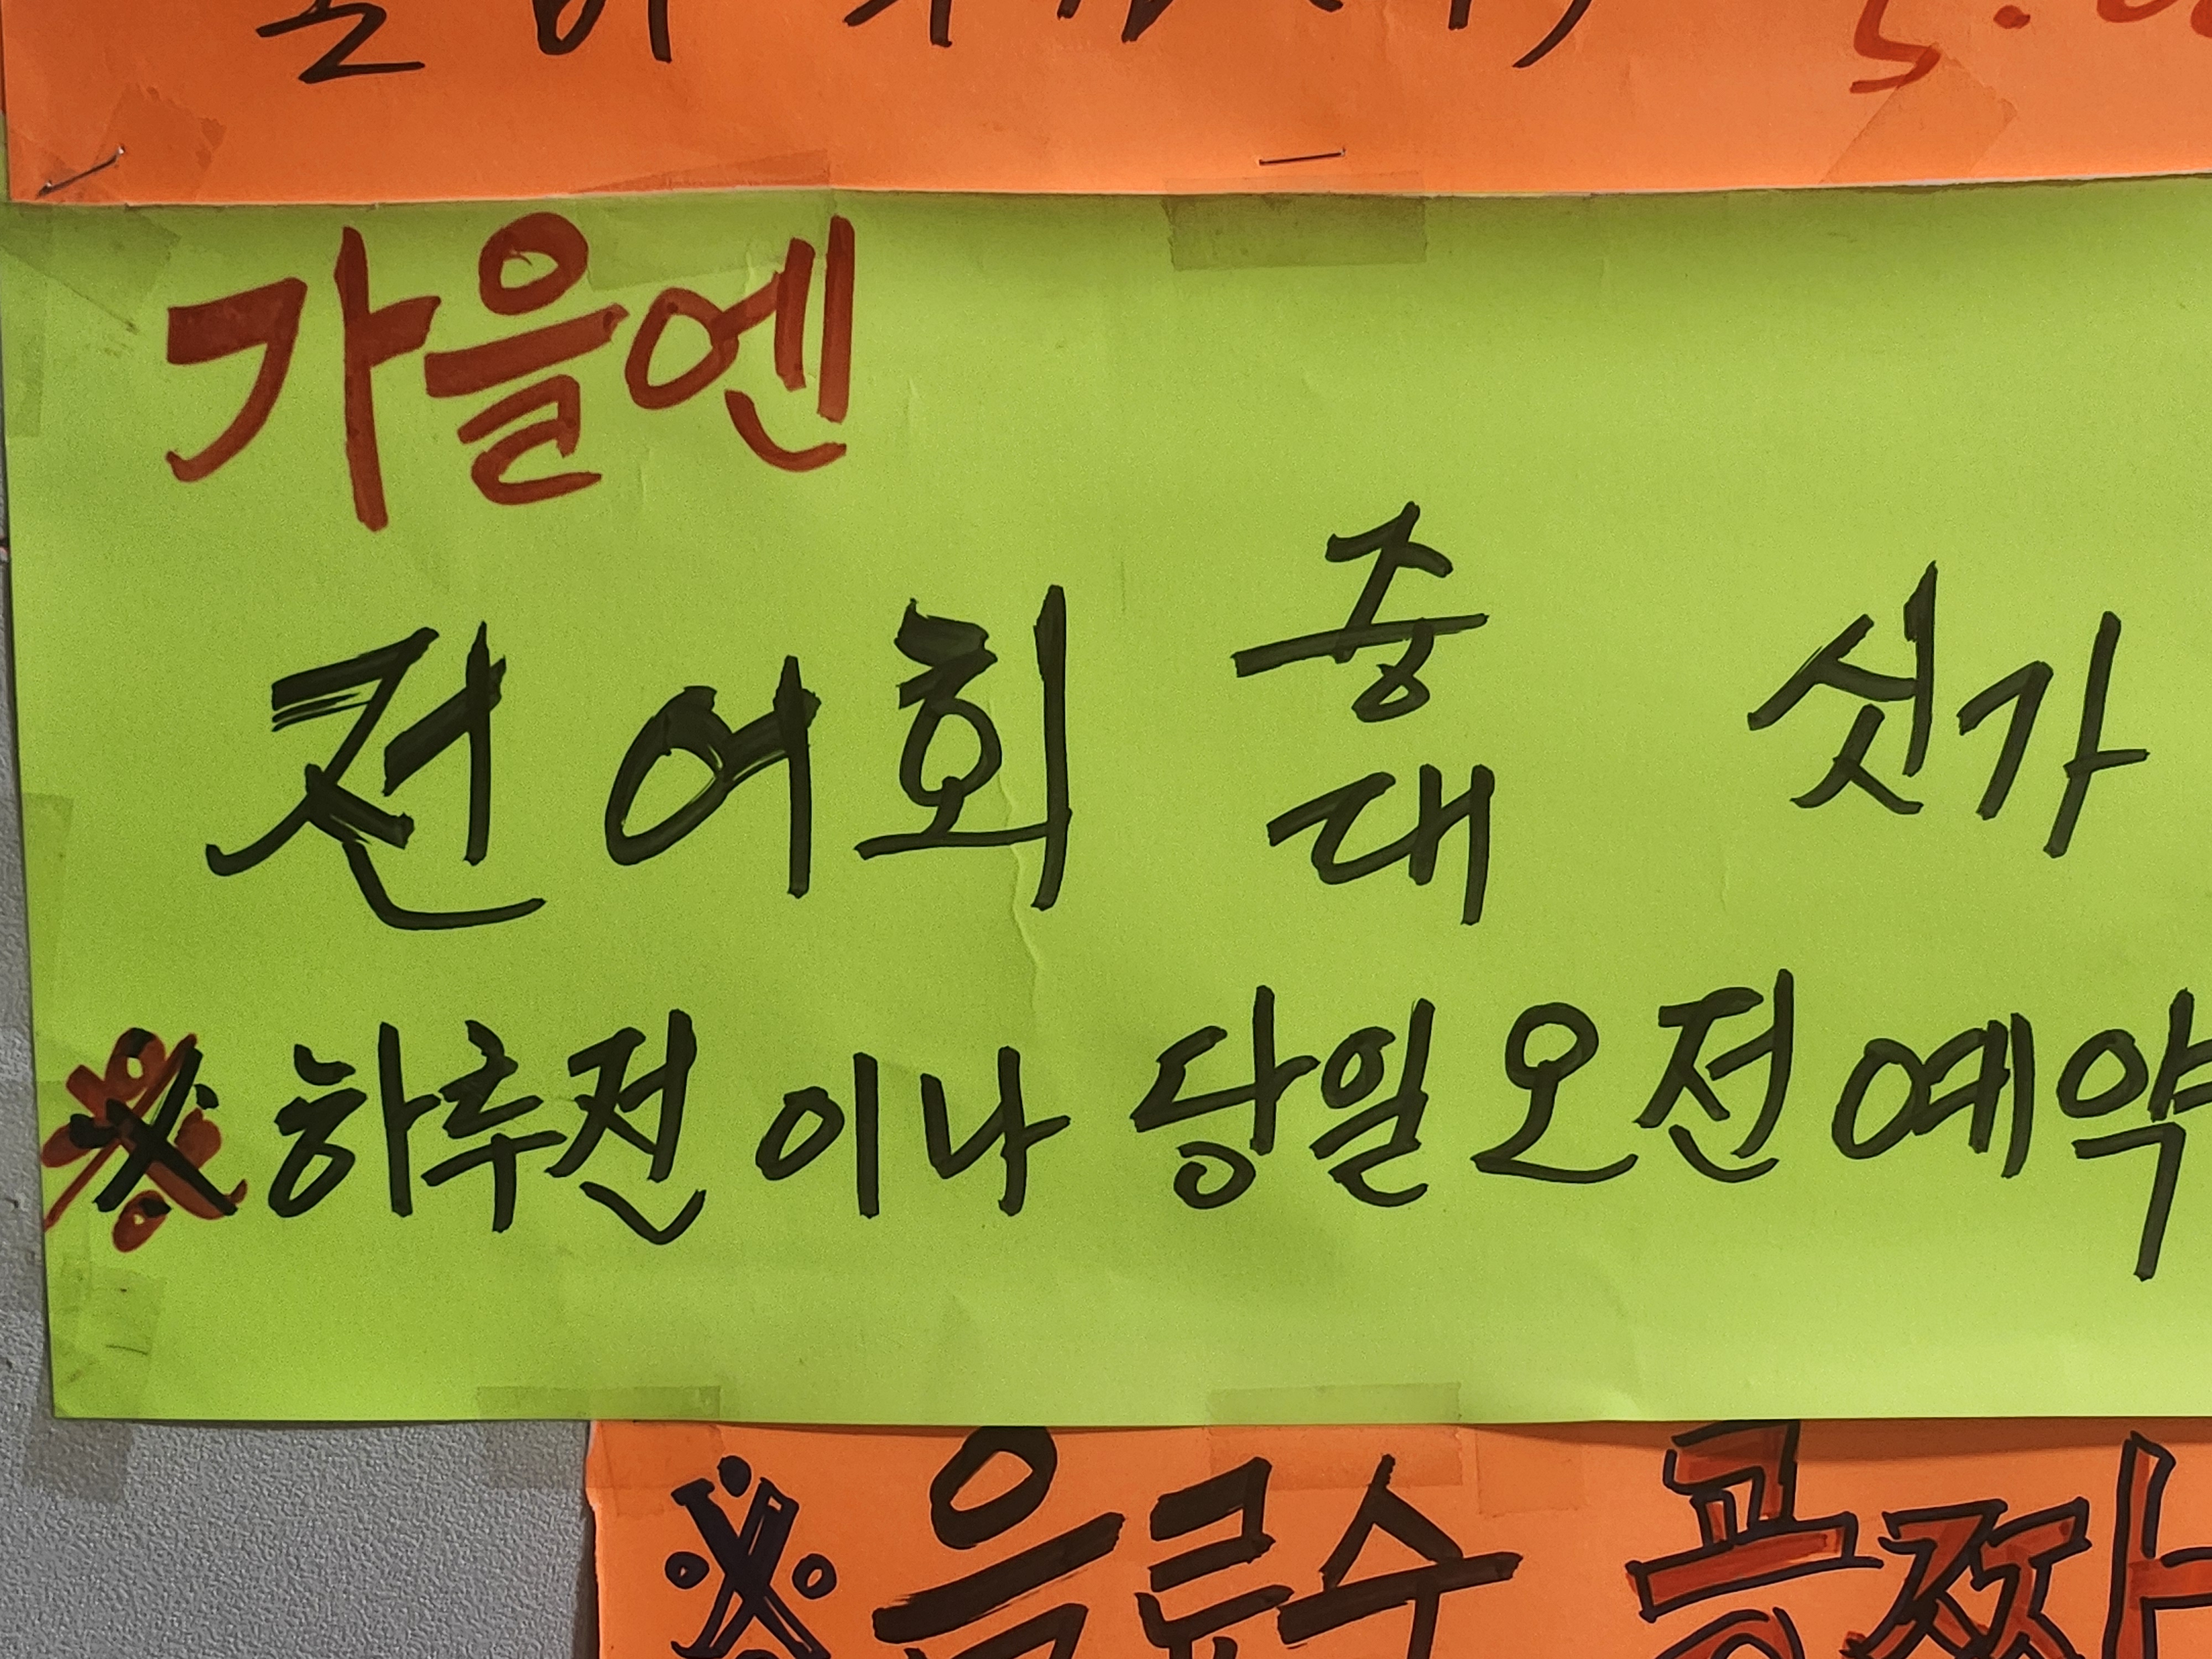 가을엔
전어회 중 싯가
대
※ 하추전 이나 당일 오전 예약
※ 음료수 공짜